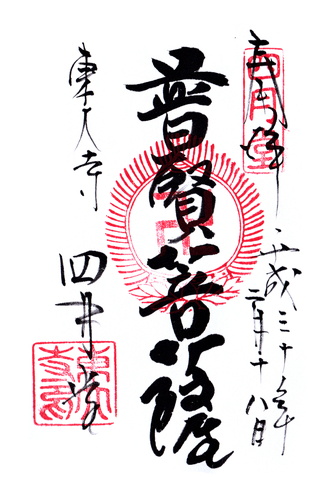 奉拝
四月堂
平成三十年
二月十八日
普賢菩薩
東大寺
四月堂